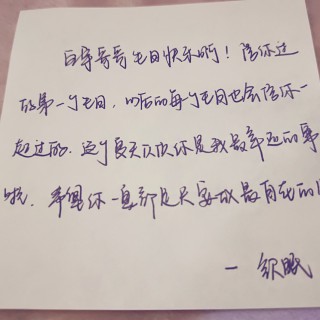 白宇哥哥生日快乐啊！陪你过
的第一个生日，以后的每个生日也会陪你一
起过的。这个夏天认识你是我最幸运的事
啦，希望你一直都是天
一 织眠